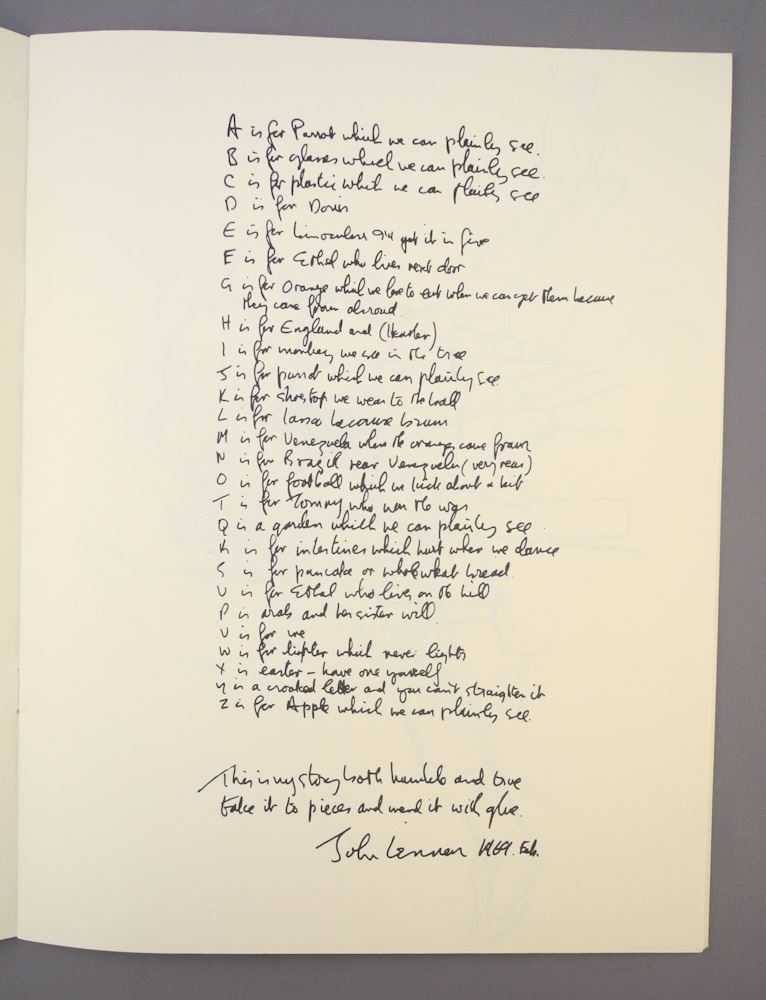 A is for Parrot which we can plainly see.
B is for glasses which we can plainly see.
C is for plastic which we can plainly see
D is for Doris
E is for binoculars I'll get it in five
F is for Ethel who lives next door
G is for Orange which we love to eat when we can get them because
they come from abroad.
H is for England and (Heather)
I is for monkey we see in the tree
J is for parrot which we can plainly see.
K is for shoetop we wear to the ball
L is for lasso because brown
M is for Venezuela where the oranges come from
N is for Brazil near Venezuela (very near)
O is for football which we kick about a bit
T is for Tommy who won the war
Q is a garden which we can plainly see.
R is for intestines which hurt when we dance
S is for pancake or wholewheat bread.
U is for Ethel who lives on the hill
P is arab and her sister will.
V is for me
W is for lighter which never lights
X is easter – have one yourself
Y is a crooked letter and you can't straighten it
Z is for Apple which we can plainly see.
This is my story both humble and true
take it to pieces and mend it with glue.
John Lennon 1969. Feb.